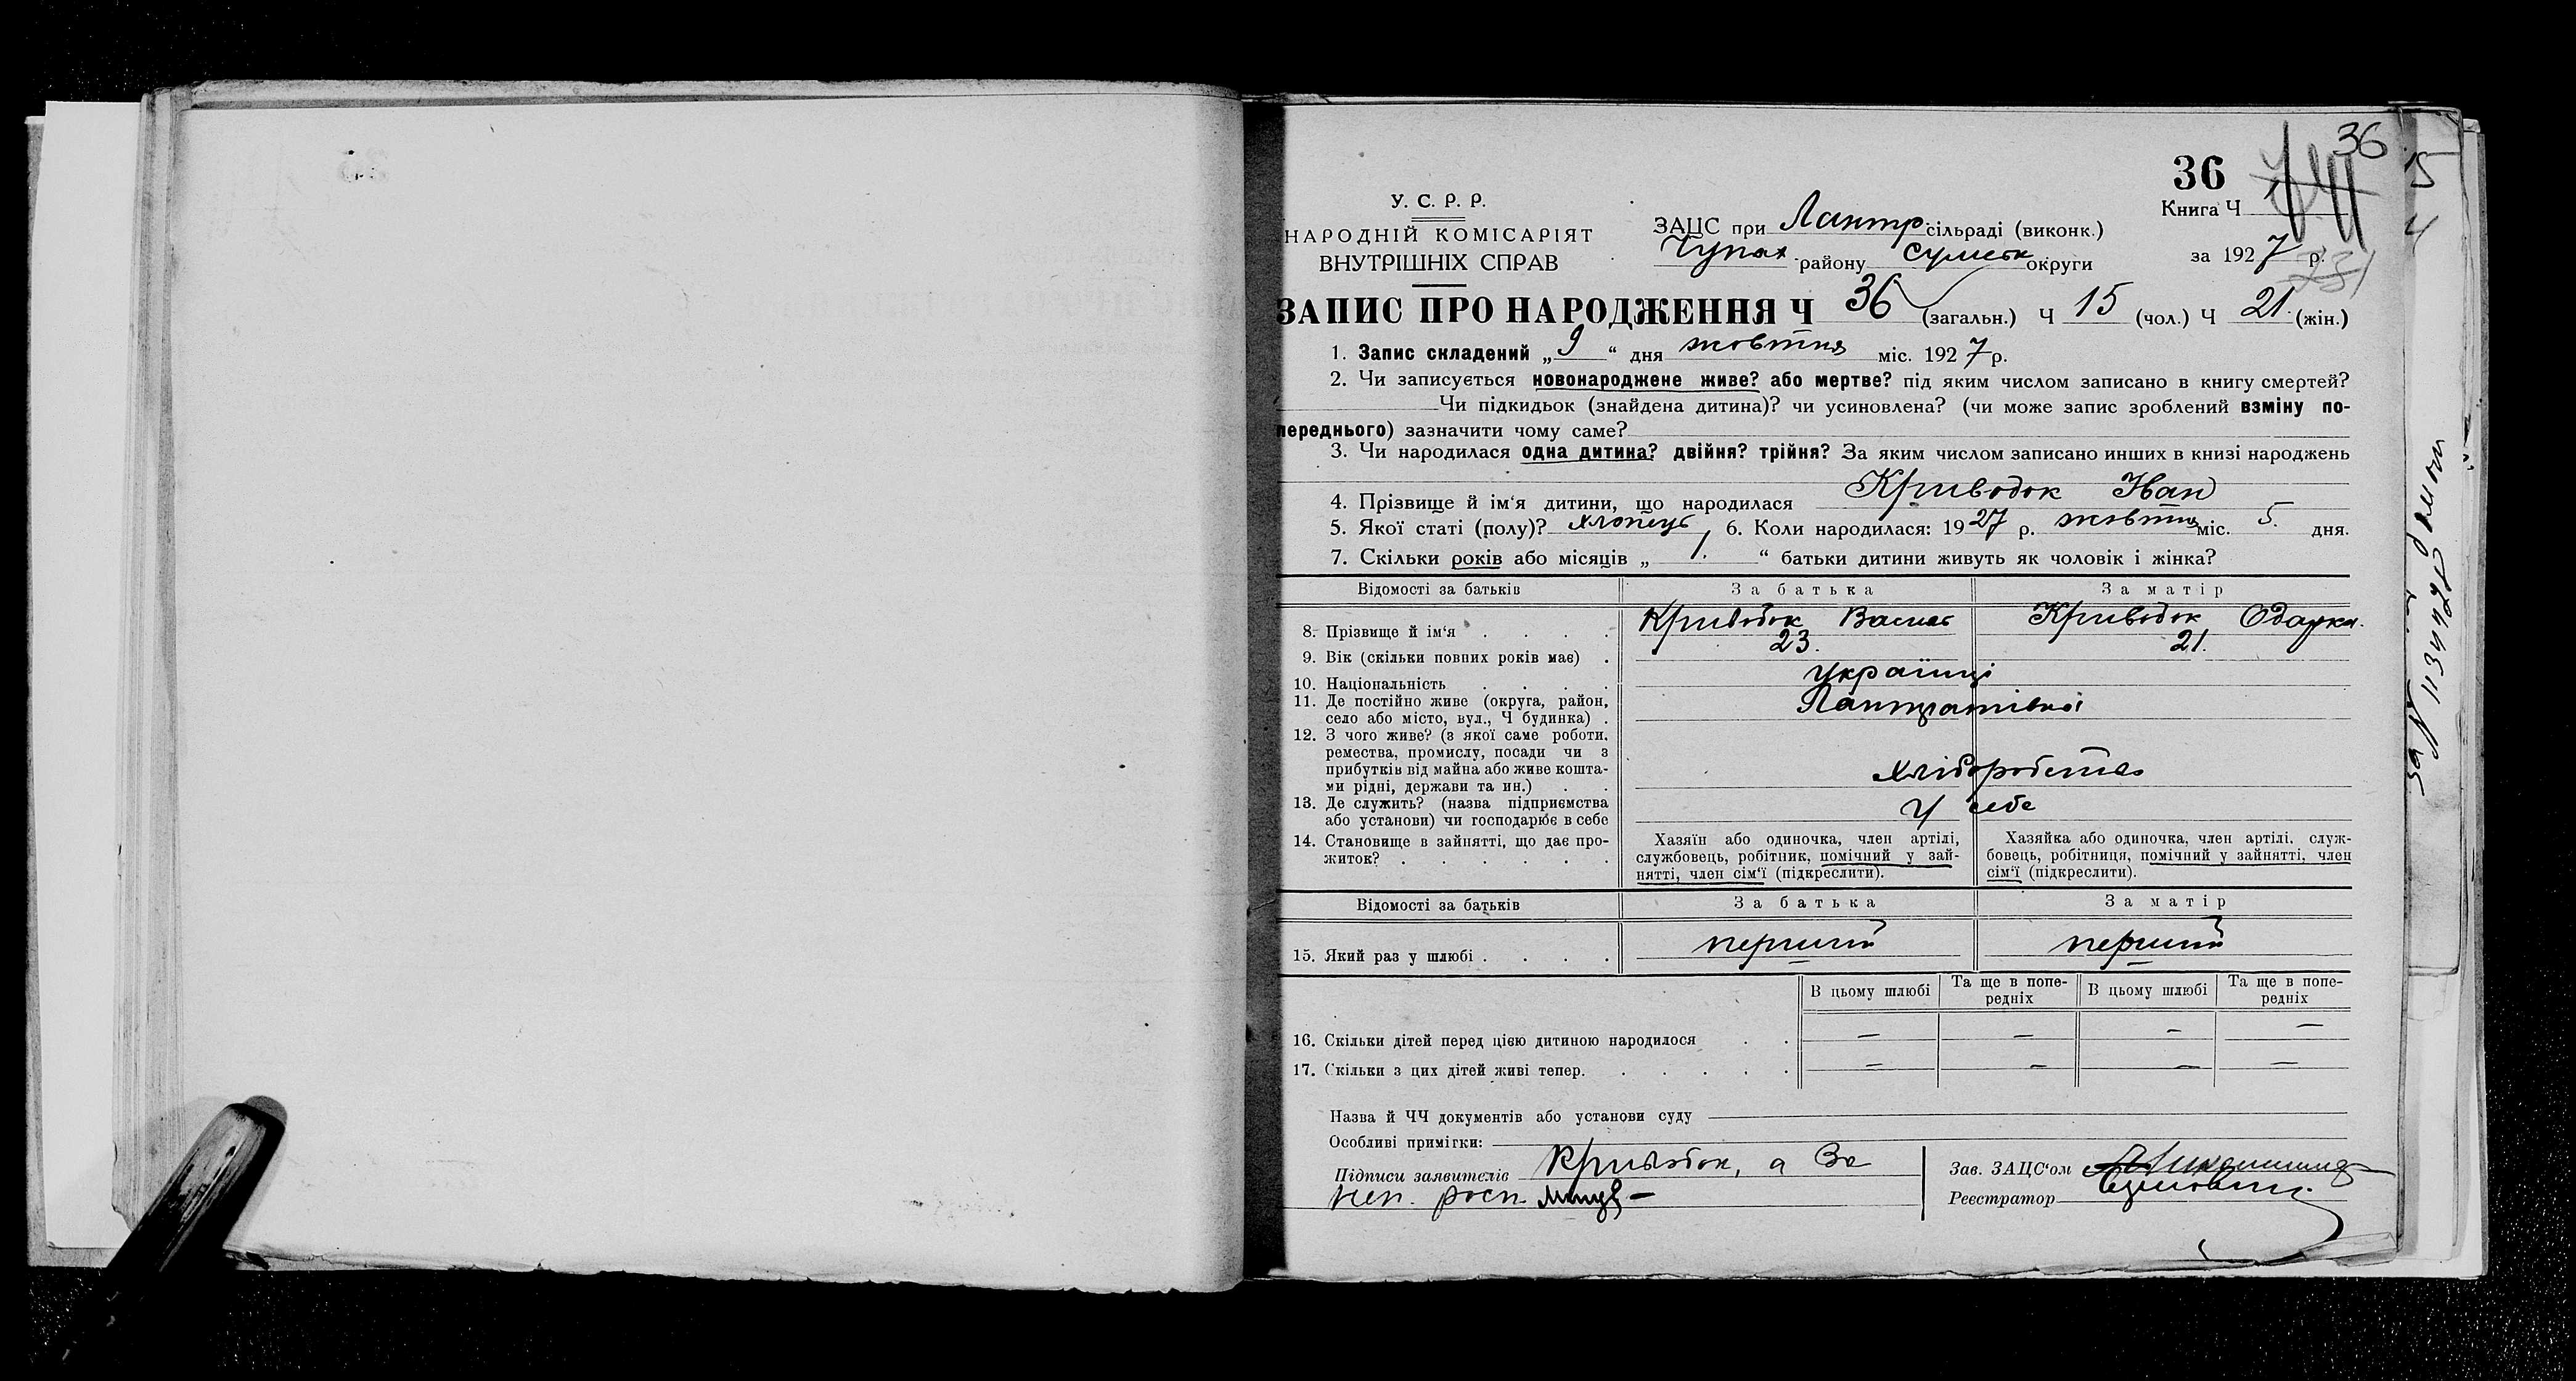 36
36
Книга Ч
У. С. Р. Р.
НАРОДНІЙ КОМІСАРІЯТ
ВНУТРІШНІХ СПРАВ
ЗАЦС при Лантр. сільраді (виконк.)
Чупах. району Сумськ округи
за 1927 р.
731
ЗАПИС ПРО НАРОДЖЕННЯ Ч 36 (загальн.) Ч 15 (чол.) Ч 21. (жін.)
1. Запис складений „9“ дня жовтня міс. 1927 р.
2. Чи записується новонароджене живе? або мертве? під яким числом записано в книгу смертей?
Чи підкидьок (знайдена дитина)? чи усиновлена? (чи може запис зроблений взміну по-
переднього) зазначити чому саме?
3. Чи народилася одна дитина? двійня? трійня? За яким числом записано инших в книзі народжень
4. Прізвище й ім‘я дитини, що народилася Криводок Іван
5. Якої статі (полу)? хлопець 6. Коли народилася: 1927 р. жовтня міс. 5. дня.
7. Скільки років або місяців „1.“ батьки дитини живуть як чоловік і жінка?
Відомості за батьків За батька За матір
8. Прізвище й ім‘я Криводок Василь Криводок Одарка.
9. Вік (скільки повних років має) 23. 21.
10. Національність українці
11. Де постійно живе (округа, район,
село або місто, вул., Ч будинка) Лантратівка
12. З чого живе? (з якої саме роботи,
ремества, промислу, посади чи з
прибутків від майна або живе кошта-
ми рідні, держави та ин.) хліборобство
13. Де служить? (назва підприємства
або установи) чи господарює в себе У себе
14. Становище в зайнятті, що дає про-
житок?
Хазяїн або одиночка, член артілі,
службовець, робітник, помічний у зай-
нятті, член сім‘ї (підкреслити).
Хазяйка або одиночка, член артілі, служ-
бовець, робітниця, помічний у зайнятті, член
сім‘ї (підкреслити).
Відомості за батьків За батька За матір
15. Який раз у шлюбі перший перший
В цьому шлюбі Та ще в попе-
редніх В цьому шлюбі Та ще в попе-
редніх
16. Скільки дітей перед цією дитиною народилося — — — —
17. Скільки з цих дітей живі тепер. — — — —
Назва й ЧЧ документів або установи суду
Особливі примітки:
Підписи заявителів Криводок, а За
неп. росп.
Зав. ЗАЦС‘ом
Реєстратор
15